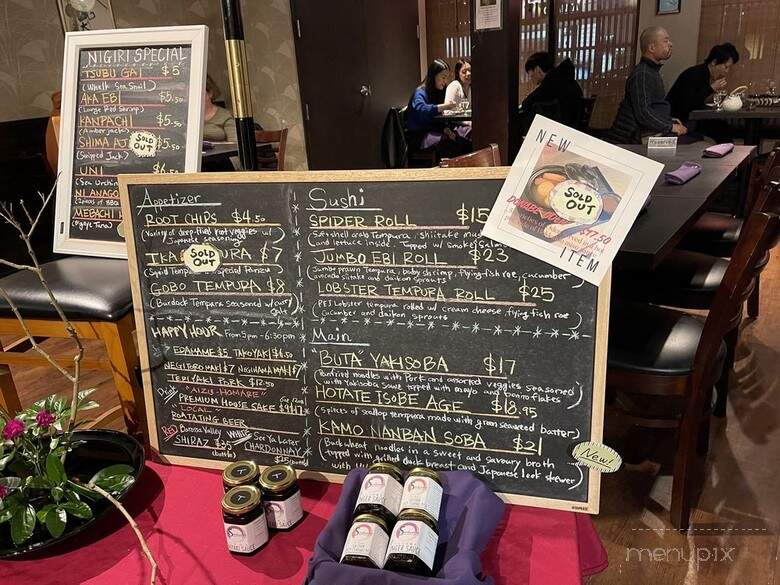 NIGIRI SPECIAL
TSUBU GAI $5
(Whelk Sea Snail)
AKA EBI $5.50
(Large Red Shrimp)
KANPACHI $5.50
(Amber jack)
SHIMA AJI $5.50
(Striped Jack)
SOLD OUT
UNI $6.50
(Sea Urchin
NI ANAGO
MEBACHI
Appetizer
ROOT CHIPS $4.50
(Variety of deep-fried root veggies w/
Japanese seasoning)
IKA PURA $7
SOLD OUT
(Squid Tempura
GOBO TEMPURA $8
(Burdock Tempura seasoned w/ curry
salt)
HAPPY HOUR From 5pm - 6:30pm
EDAMAME $5 TAKOYAKI $6.50
NEGITORO MAKI $7 NEGIHAMA MAKI $7
TERIYAKI PORK $12.50
Drink "AIZU-HOMARE"
PREMIUM HOUSE SAKE
"LOCAL"
ROTATING BEER
RED Barossa Valley WHITE See Ya Later
SHIRAZ $35 CHARDONNAY
(bottle)
Sushi
SPIDER ROLL $15
(Softshell crab Tempura, shiitake
and lettuce inside. Topped w/ Smoked Salmon
JUMBO EBI ROLL $23
(Jumbo prawn Tempura, baby shrimp, flying fish roe, cucumber
avocado inside and daikon sprouts)
LOBSTER TEMPURA ROLL $25
(PEI Lobster tempura rolled w/ cream cheese flying fish roe
cucumber and daikon sprouts)
Main
BUTA YAKISOBA $17
(Panfried noodles with Pork and assorted veggies seasoned
with Yakisoba Sauce topped with mayo and bonito flakes)
HOTATE ISOBE AGE $18.95
(5 pieces of scallop tempura made with green seaweed batter)
KAMO NANBAN SOBA $21
(Buckwheat noodles in a sweet and savoury broth
topped with grilled duck breast and Japanese leek skewer)
New!
NEW
SOLD OUT
$17.50
ITEM
GINGER SAUCE
menupix